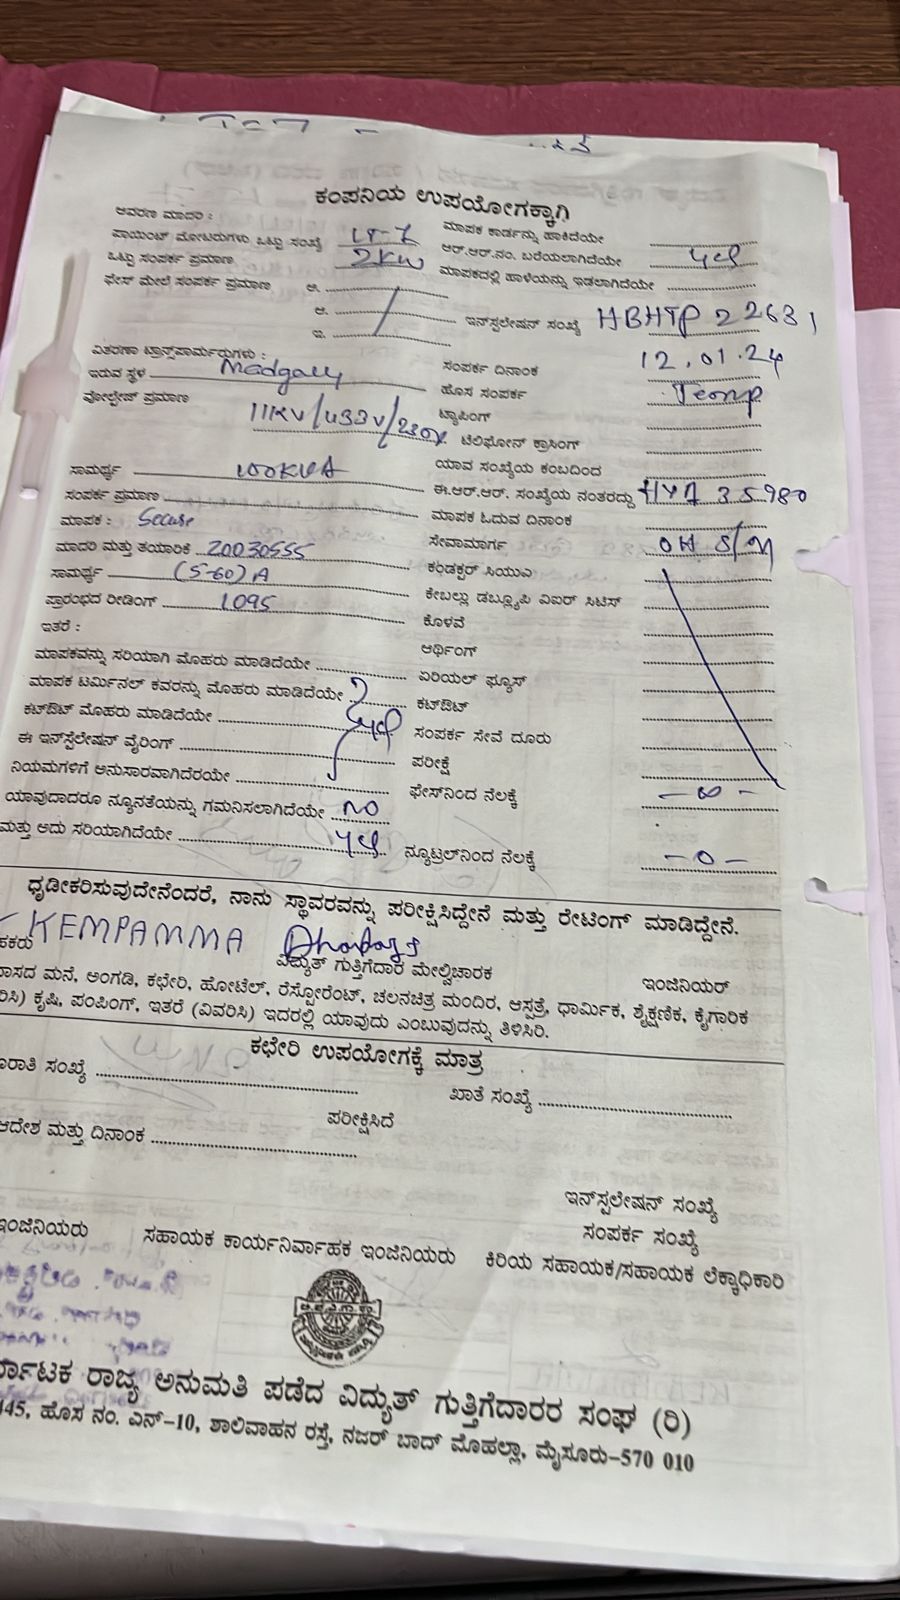 ಕಂಪನಿಯ ಉಪಯೋಗಕ್ಕಾಗಿ
ಆವರಣ ಮಾದರಿ :
ಪಾಯಿಂಟ್ ಮೋಟರುಗಳು ಒಟ್ಟು ಸಂಖ್ಯೆ LT-7
ಒಟ್ಟು ಸಂಪರ್ಕ ಪ್ರಮಾಣ 2KW
ಫೇಸ್ ಮೇಲೆ ಸಂಪರ್ಕ ಪ್ರಮಾಣ ಅ.
ಆ.
ಇ.
ವಿತರಣಾ ಟ್ರಾನ್ಸ್‌ಪಾರ್ಮರುಗಳು :
ಇರುವ ಸ್ಥಳ Madgally
ವೋಲ್ಟೇಜ್ ಪ್ರಮಾಣ 11KV/433V/230V
ಸಾಮರ್ಥ್ಯ 100KVA
ಸಂಪರ್ಕ ಪ್ರಮಾಣ
ಮಾಪಕ : Secure
ಮಾದರಿ ಮತ್ತು ತಯಾರಿಕೆ 20030555
ಸಾಮರ್ಥ್ಯ (5-60)A
ಪ್ರಾರಂಭದ ರೀಡಿಂಗ್ 1095
ಇತರೆ :
ಮಾಪಕವನ್ನು ಸರಿಯಾಗಿ ಮೊಹರು ಮಾಡಿದೆಯೇ
ಮಾಪಕ ಟರ್ಮಿನಲ್ ಕವರನ್ನು ಮೊಹರು ಮಾಡಿದೆಯೇ
ಕಟ್‌ಔಟ್ ಮೊಹರು ಮಾಡಿದೆಯೇ yes
ಈ ಇನ್‌ಸ್ಟೆಲೇಷನ್ ವೈರಿಂಗ್
ನಿಯಮಗಳಿಗೆ ಅನುಸಾರವಾಗಿದೆರಯೇ
ಯಾವುದಾದರೂ ನ್ಯೂನತೆಯನ್ನು ಗಮನಿಸಲಾಗಿದೆಯೇ NO
ಮತ್ತು ಅದು ಸರಿಯಾಗಿದೆಯೇ yes
ಮಾಪಕ ಕಾರ್ಡನ್ನು ಹಾಕಿದೆಯೇ
ಆರ್.ಆರ್.ನಂ. ಬರೆಯಲಾಗಿದೆಯೇ yes
ಮಾಪಕದಲ್ಲಿ ಹಾಳೆಯನ್ನು ಇಡಲಾಗಿದೆಯೇ
ಇನ್‌ಸ್ಟಲೇಷನ್ ಸಂಖ್ಯೆ HBHTP 22631
ಸಂಪರ್ಕ ದಿನಾಂಕ 12.01.24
ಹೊಸ ಸಂಪರ್ಕ Temp
ಟ್ಯಾಪಿಂಗ್
ಟೆಲಿಫೋನ್ ಕ್ರಾಸಿಂಗ್
ಯಾವ ಸಂಖ್ಯೆಯ ಕಂಬದಿಂದ
ಈ.ಆರ್.ಆರ್. ಸಂಖ್ಯೆಯ ನಂತರದ್ದು HYA 35980
ಮಾಪಕ ಓದುವ ದಿನಾಂಕ
ಸೇವಾಮಾರ್ಗ OH S/M
ಕಂಡಕ್ಟರ್ ಸಿಯುವಿ
ಕೇಬಲ್ಲು ಡಬ್ಲ್ಯೂಪಿ ವಿಐರ್ ಸಿಟಿಸ್
ಕೊಳವೆ
ಆರ್ಥಿಂಗ್
ಏರಿಯಲ್ ಫ್ಯೂಸ್
ಕಟ್‌ಔಟ್
ಸಂಪರ್ಕ ಸೇವೆ ದೂರು
ಪರೀಕ್ಷೆ
ಫೇಸ್‌ನಿಂದ ನೆಲಕ್ಕೆ - ∞ -
ನ್ಯೂಟ್ರಲ್‌ನಿಂದ ನೆಲಕ್ಕೆ - 0 -
ಧೃಡೀಕರಿಸುವುದೇನೆಂದರೆ, ನಾನು ಸ್ಥಾವರವನ್ನು ಪರೀಕ್ಷಿಸಿದ್ದೇನೆ ಮತ್ತು ರೇಟಿಂಗ್ ಮಾಡಿದ್ದೇನೆ.
KEMPAMMA
ವಿದ್ಯುತ್ ಗುತ್ತಿಗೆದಾರ ಮೇಲ್ವಿಚಾರಕ ಇಂಜಿನಿಯರ್
ಮನೆ, ಅಂಗಡಿ, ಕಛೇರಿ, ಹೋಟೆಲ್, ರೆಸ್ಟೋರೆಂಟ್, ಚಲನಚಿತ್ರ ಮಂದಿರ, ಆಸ್ಪತ್ರೆ, ಧಾರ್ಮಿಕ, ಶೈಕ್ಷಣಿಕ, ಕೈಗಾರಿಕ
ಕೃಷಿ, ಪಂಪಿಂಗ್, ಇತರೆ (ವಿವರಿಸಿ) ಇದರಲ್ಲಿ ಯಾವುದು ಎಂಬುವುದನ್ನು ತಿಳಿಸಿರಿ.
ಕಛೇರಿ ಉಪಯೋಗಕ್ಕೆ ಮಾತ್ರ
ಸಂಖ್ಯೆ ಖಾತೆ ಸಂಖ್ಯೆ
ಪರೀಕ್ಷಿಸಿದೆ
ಆದೇಶ ಮತ್ತು ದಿನಾಂಕ
ಇನ್‌ಸ್ಪಲೇಷನ್ ಸಂಖ್ಯೆ
ಸಂಪರ್ಕ ಸಂಖ್ಯೆ
ಇಂಜಿನಿಯರು ಸಹಾಯಕ ಕಾರ್ಯನಿರ್ವಾಹಕ ಇಂಜಿನಿಯರು ಕಿರಿಯ ಸಹಾಯಕ/ಸಹಾಯಕ ಲೆಕ್ಕಾಧಿಕಾರಿ
ರಾಜ್ಯ ಅನುಮತಿ ಪಡೆದ ವಿದ್ಯುತ್ ಗುತ್ತಿಗೆದಾರರ ಸಂಘ (ರಿ)
145, ಹೊಸ ನಂ. ಎನ್-10, ಶಾಲಿವಾಹನ ರಸ್ತೆ, ನಜರ್ ಬಾದ್ ಮೊಹಲ್ಲಾ, ಮೈಸೂರು-570 010